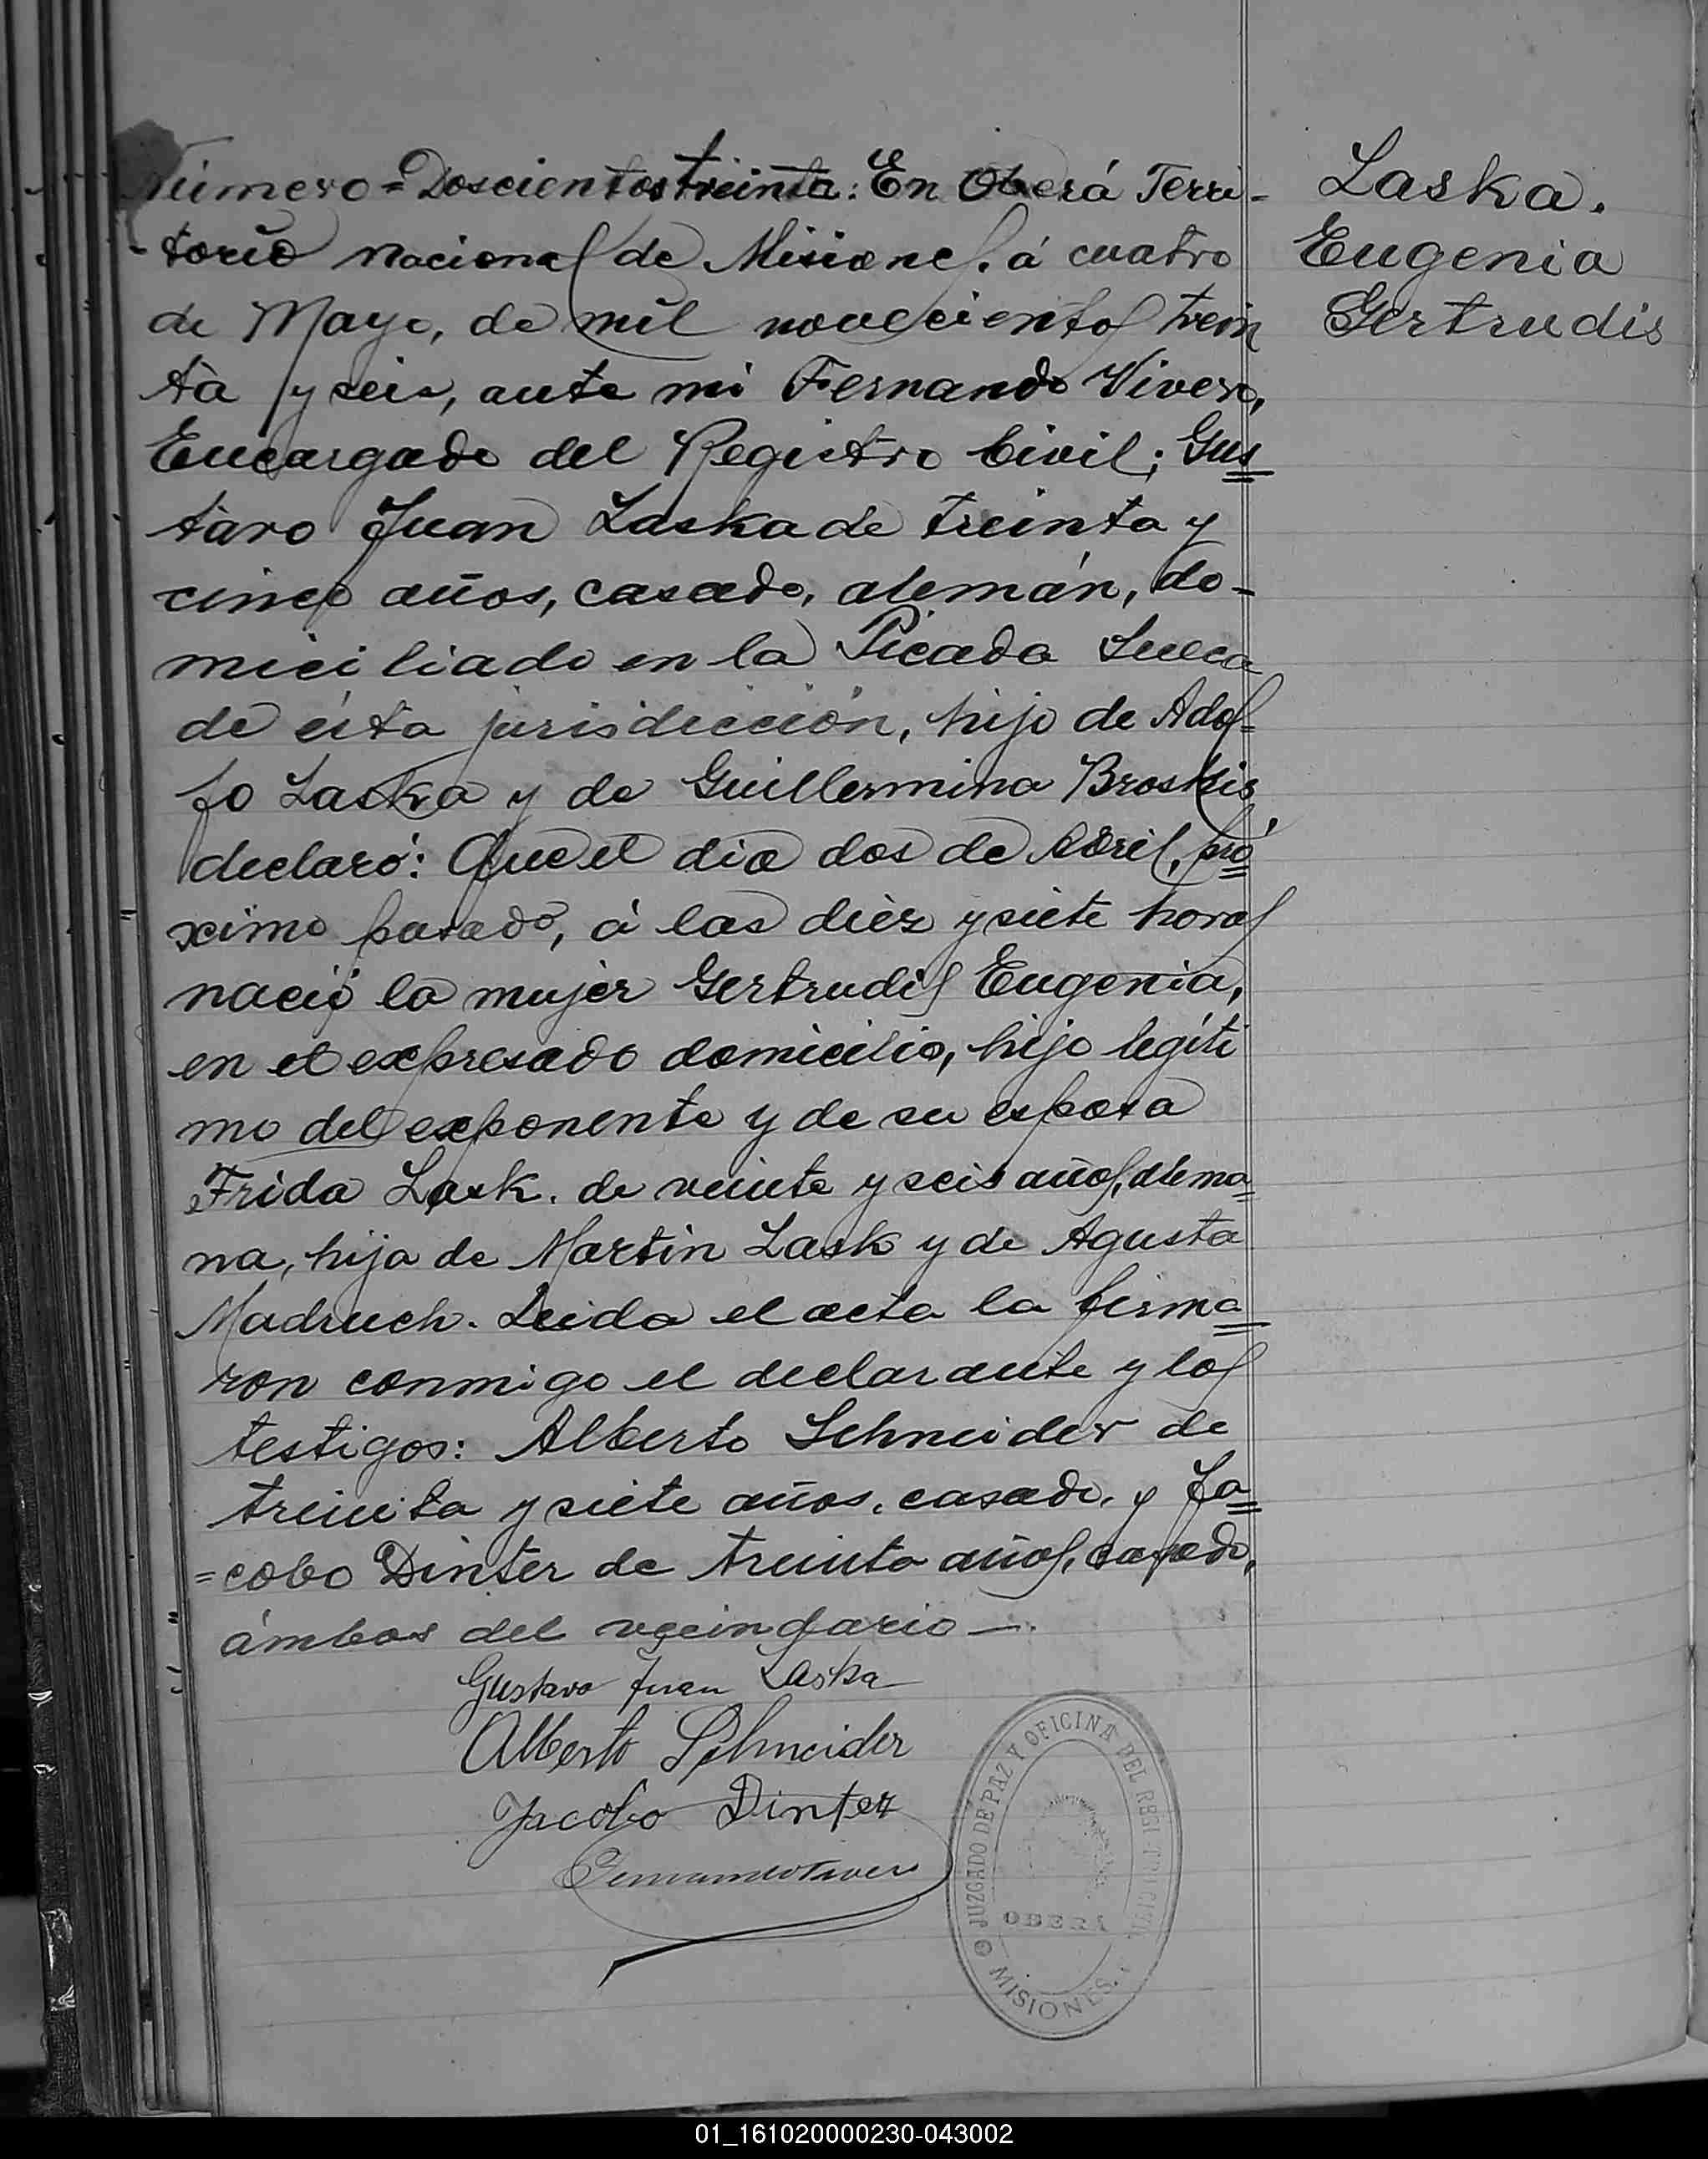 Número = Doscientos treinta: En Oberá Terri-
-torio Nacional de Misiones. á cuatro
de Mayo, de mil novecientos trein
ta y seis, ante mi Fernando Vivero,
Encargado del Registro Civil; Gus=
tavo Juan Laska de treinta y
cinco años, casado, alemán, do-
miciliado en la Picada Sueca
de ésta jurisdicción, hijo de Adol=
fo Laska y de Guillermina
declaró: Que el dia dos de Abril, pró=
ximo pasado, á las diez y siete horas
nació la mujer Gertrudis Eugenia,
en el expresado domicilio, hijo legíti
mo del exponente y de su esposa
Frida Lask. de veinte y seis años, alema=
na, hija de Martin Lask y de Agusta
Madruch. Leida el acta la firma=
ron conmigo el declarante y los
testigos: Alberto Schneider de
treinta y siete años, casado, y Ja=
=cobo Dinter de treinta años, casado,
ámbos del vecindario —.
Laska.
Eugenia
Gertrudis
Gustavo Juan Laska
Alberto Schneider
Jacobo Dinter
JUZGADO DE PAZ Y OFICINA DEL
OBERÁ
MISIONES
01_161020000230-043002